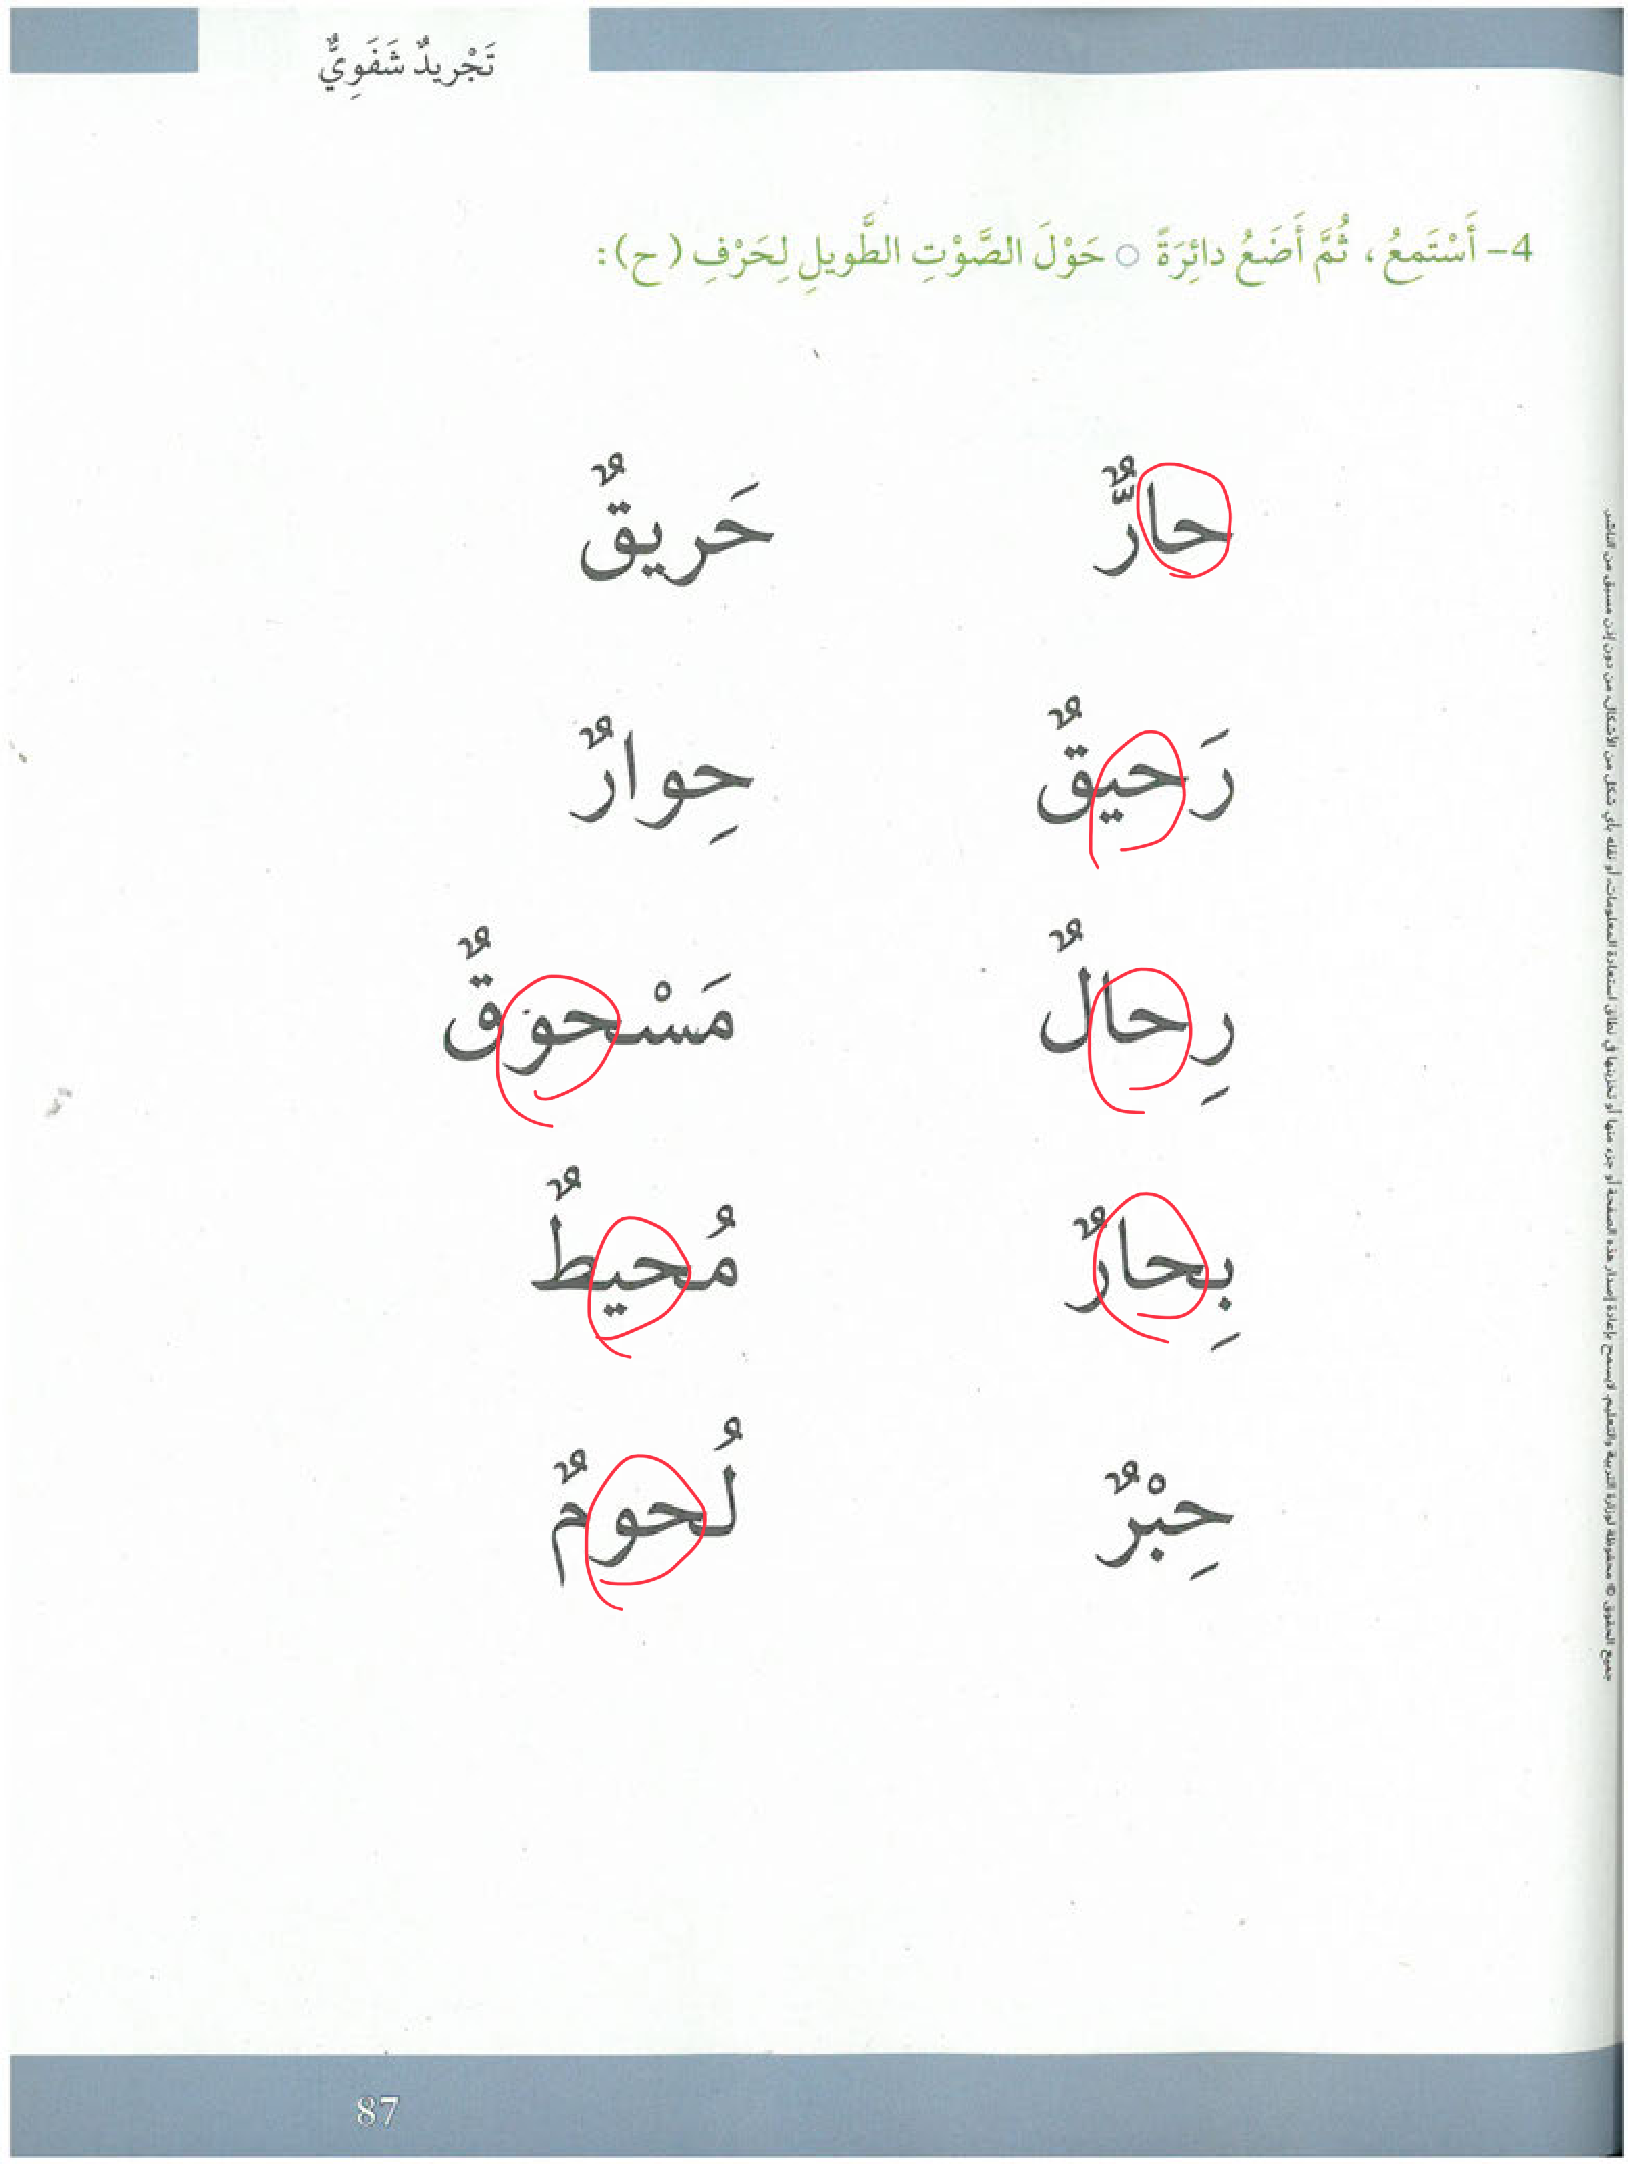 تَجْريدٌ شَفَوِيٌّ
4- أَسْتَمِعُ، ثُمَّ أَضَعُ دائِرَةً ○ حَوْلَ الصَّوْتِ الطَّويلِ لِحَرْفِ (ح):
حارٌّ حَريقٌ
رَحيقٌ حِوارٌ
رِحالٌ مَسْحوقٌ
بِحارٌ مُحيطٌ
حِبْرٌ لُحومٌ
87
جميع الحقوق © محفوظة لوزارة التربية والتعليم. لايسمح بإعادة إصدار هذه الصفحة أو جزء منها أو تخزينها في نطاق استعادة المعلومات، أو نقله بأي شكل من الأشكال، من دون إذن مسبق من الناشر.